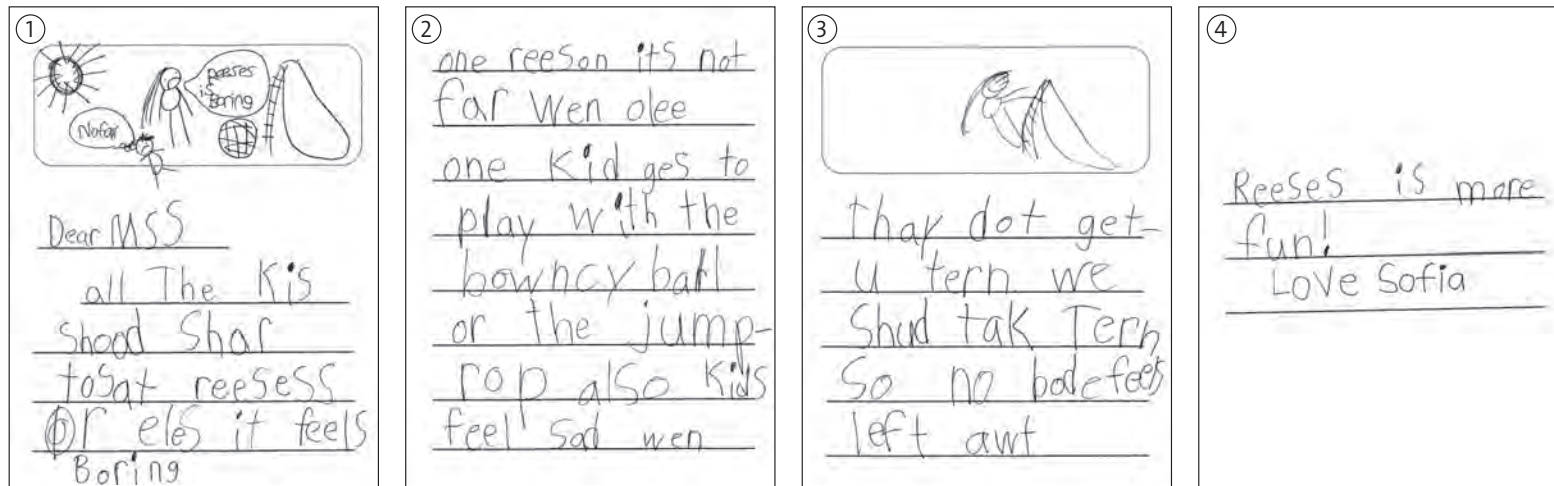 1
Reeses
is
Boring
No fair
Dear MSS
all The Kis
Shood Shar
tosat reesess
Or eles it feels
Boring
2
one reeson its not
far wen olee
one Kid ges to
play with the
bowncy ball
or the jump-
rop also Kids
feel sad wen
3
thay dot get-
u tern we
Shud tak Tern
So no bode feels
left awt
4
Reeses is more
fun!
Love Sofia